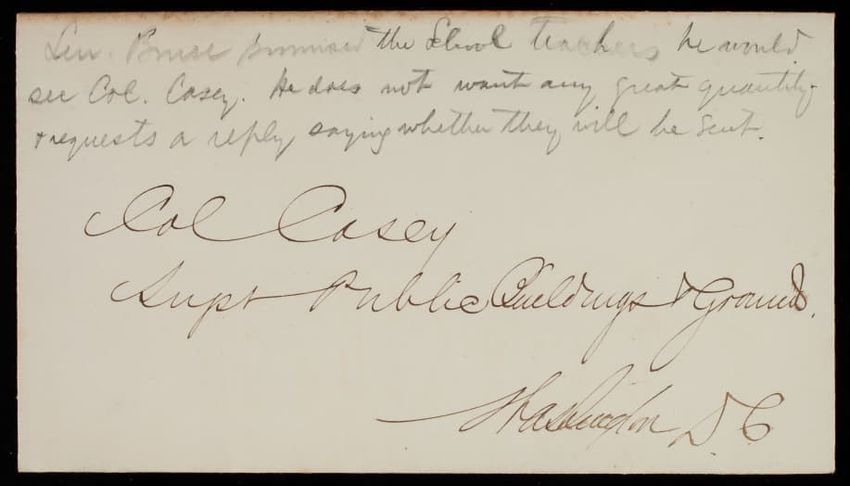 Sen. Bruce promised the School teachers he would
see Col. Casey. He does not want any great quantity
& requests a reply saying whether they will be sent.
Col Casey
Supt Public Buildings & Grounds.
Washington D. C